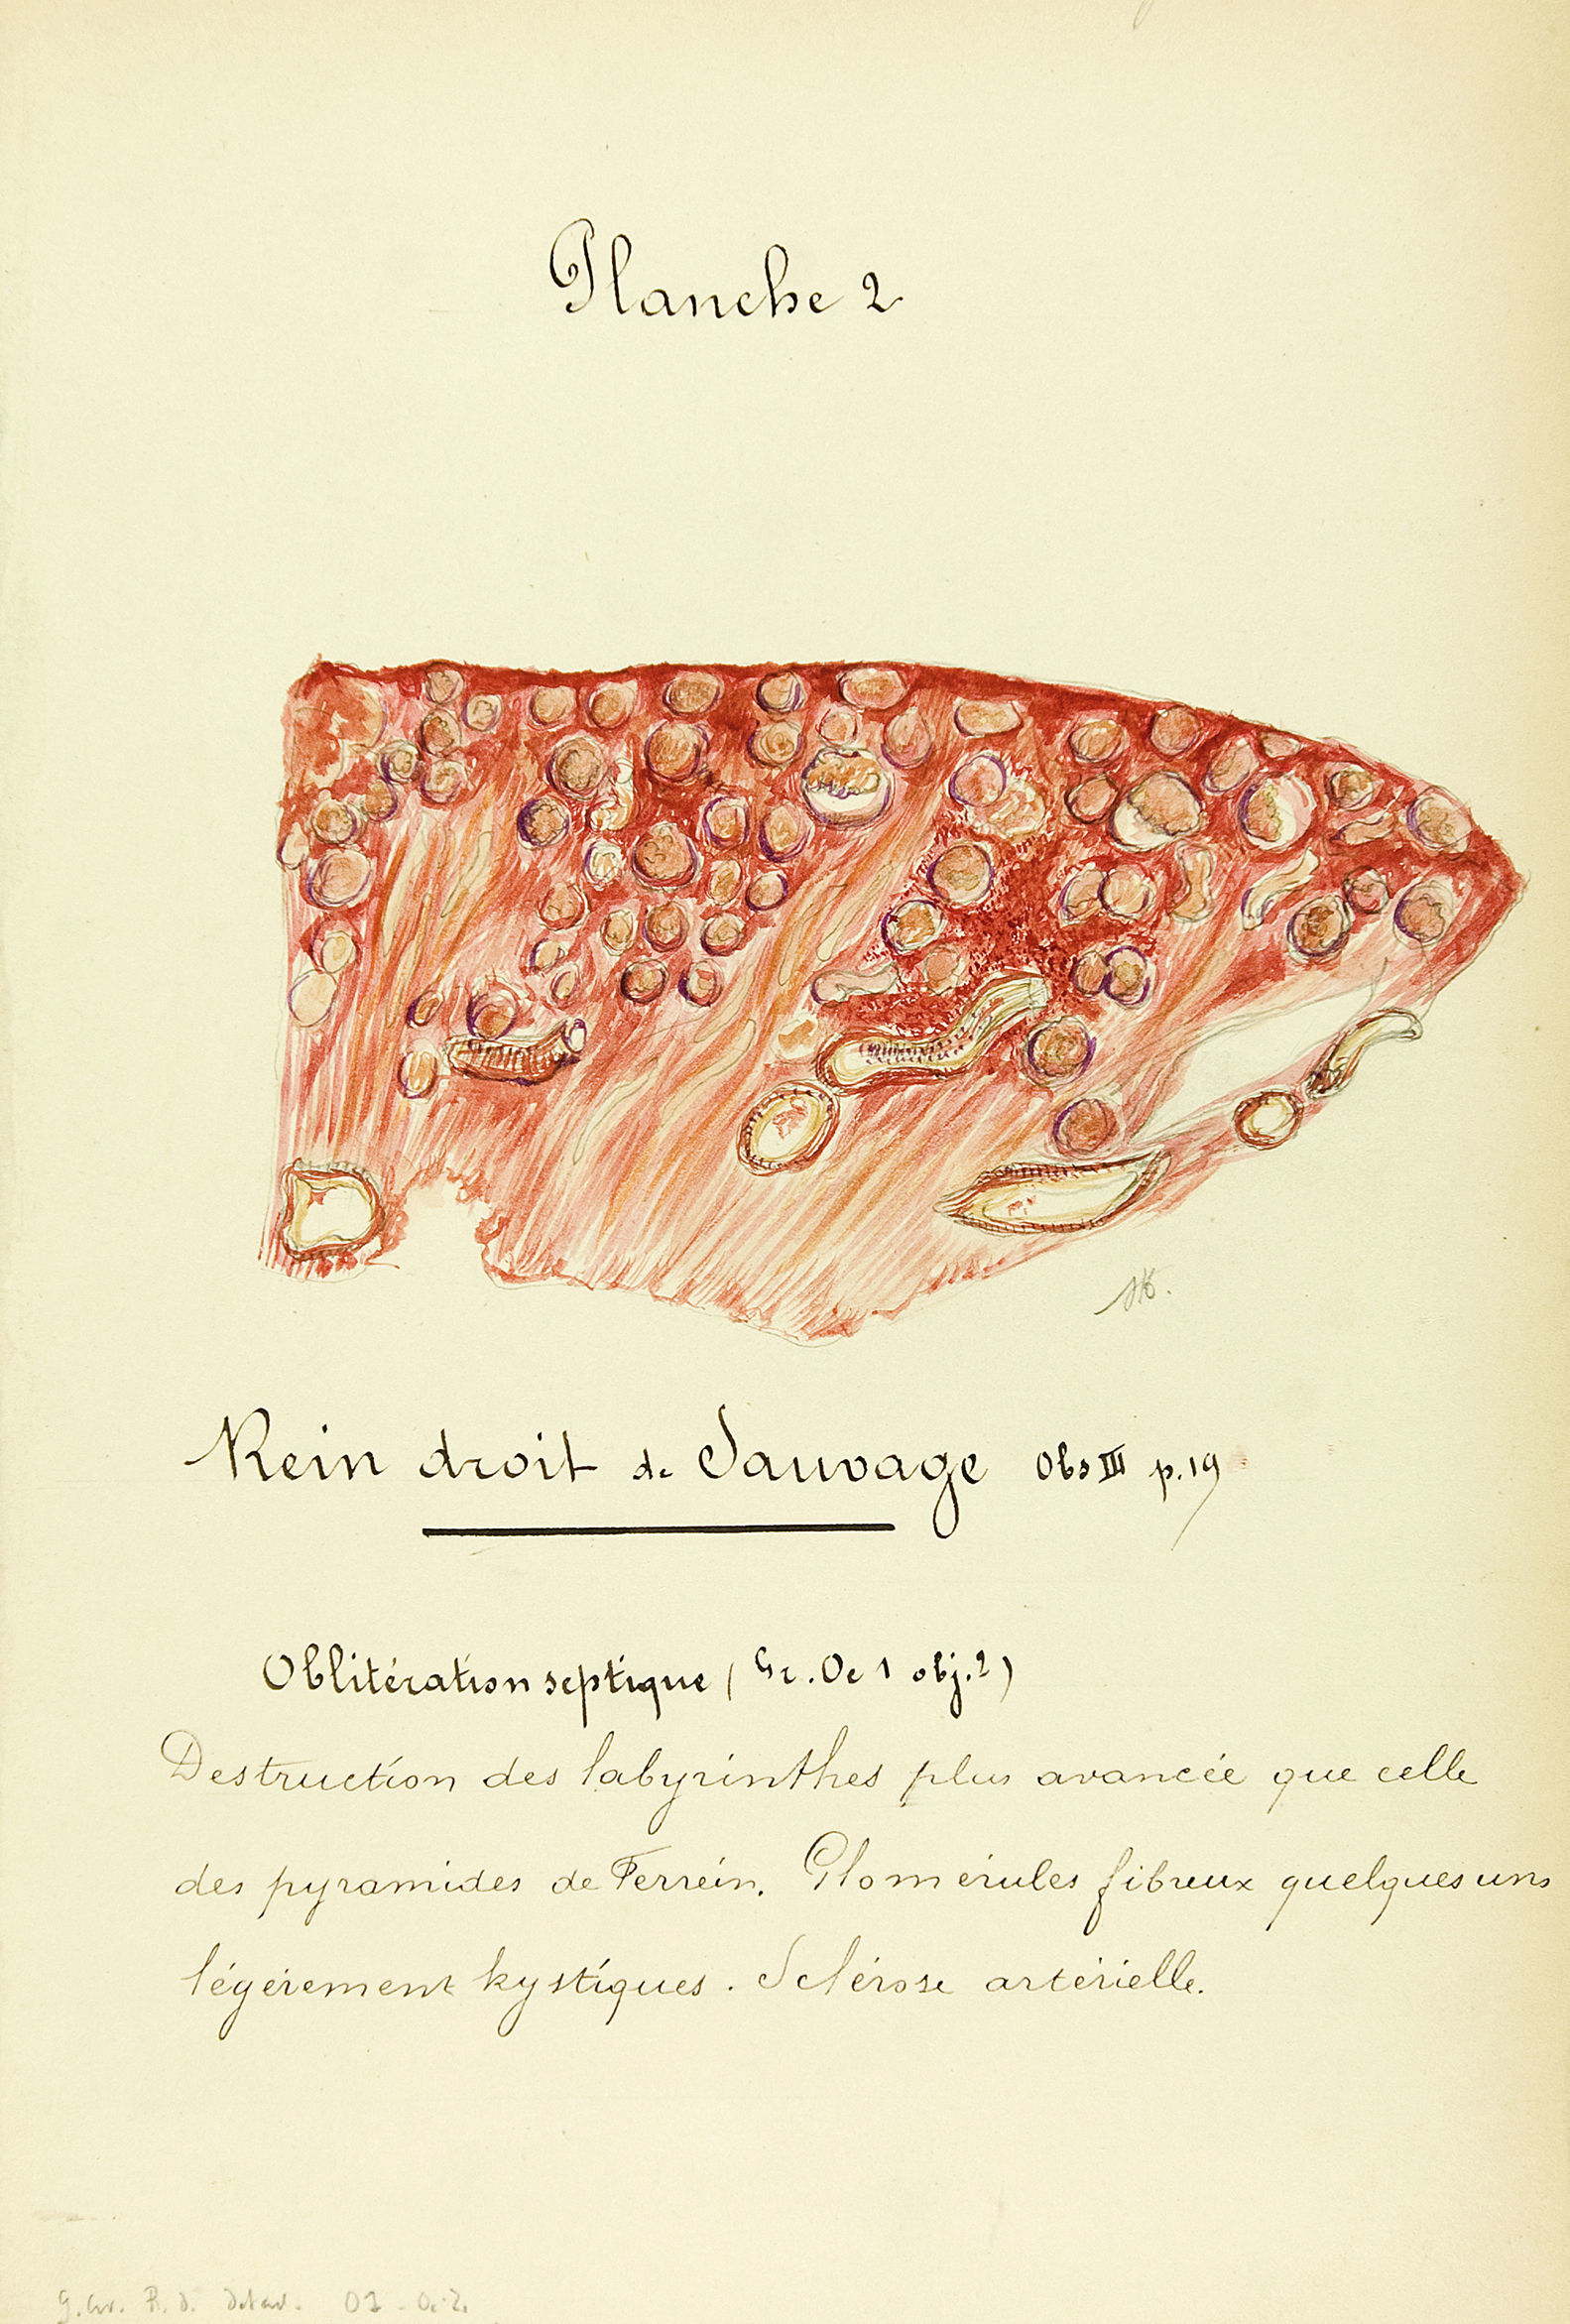 Planche 2
Rein droit de Sauvage Obs III p. 19
Oblitération septique (Gr. Oc 1 obj. 2)
Destruction des labyrinthes plus avancée que celle
des pyramides de Ferrein. Glomérules fibreux quelques uns
légèrement kystiques. Sclérose artérielle.